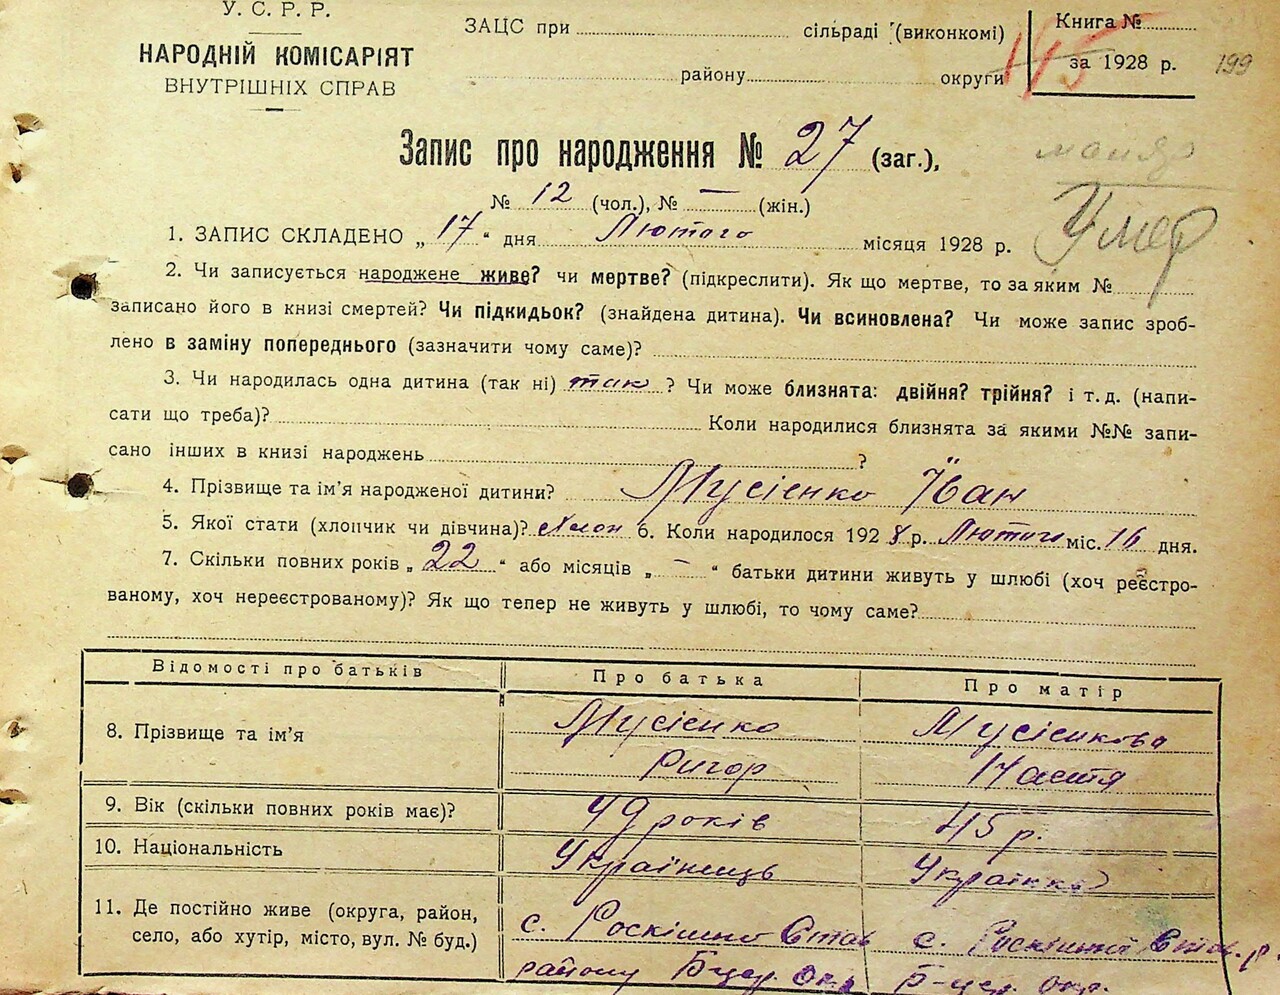 У. С. Р. Р.
НАРОДНІЙ КОМІСАРІЯТ
ВНУТРІШНІХ СПРАВ
ЗАЦС при сільраді (виконкомі)
району округи
Книга №
145
за 1928 р.
199
Запис про народження № 27 (заг.),
№ 12 (чол.), № — (жін.)
Умер
1. ЗАПИС СКЛАДЕНО „ 17 “ дня Лютого місяця 1928 р.
2. Чи записується народжене живе? чи мертве? (підкреслити). Як що мертве, то за яким №
записано його в книзі смертей? Чи підкидьок? (знайдена дитина). Чи всиновлена? Чи може запис зроб-
лено в заміну попереднього (зазначити чому саме)?
3. Чи народилась одна дитина (так ні) так ? Чи може близнята: двійня? трійня? і т. д. (напи-
сати що треба)? Коли народилися близнята за якими №№ запи-
сано інших в книзі народжень ?
4. Прізвище та ім’я народженої дитини? Мусієнко Йван
5. Якої стати (хлопчик чи дівчина)? Хлоп 6. Коли народилося 192 8 р. Лютого міс. 16 дня.
7. Скільки повних років „ 22 “ або місяців „ — “ батьки дитини живуть у шлюбі (хоч реєстро-
ваному, хоч нереєстрованому)? Як що тепер не живуть у шлюбі, то чому саме?
Відомості про батьків Про батька Про матір
8. Прізвище та ім’я Мусієнко Ригор Мусієнкова Настя
9. Вік (скільки повних років має)? 49 років 45 р.
10. Національність Українець Українка
11. Де постійно живе (округа, район,
село, або хутір, місто, вул. № буд.)
с. Роскішна Став
району Б цер. Окр
с. Роскішної Став. р.
Б-цер. окр.